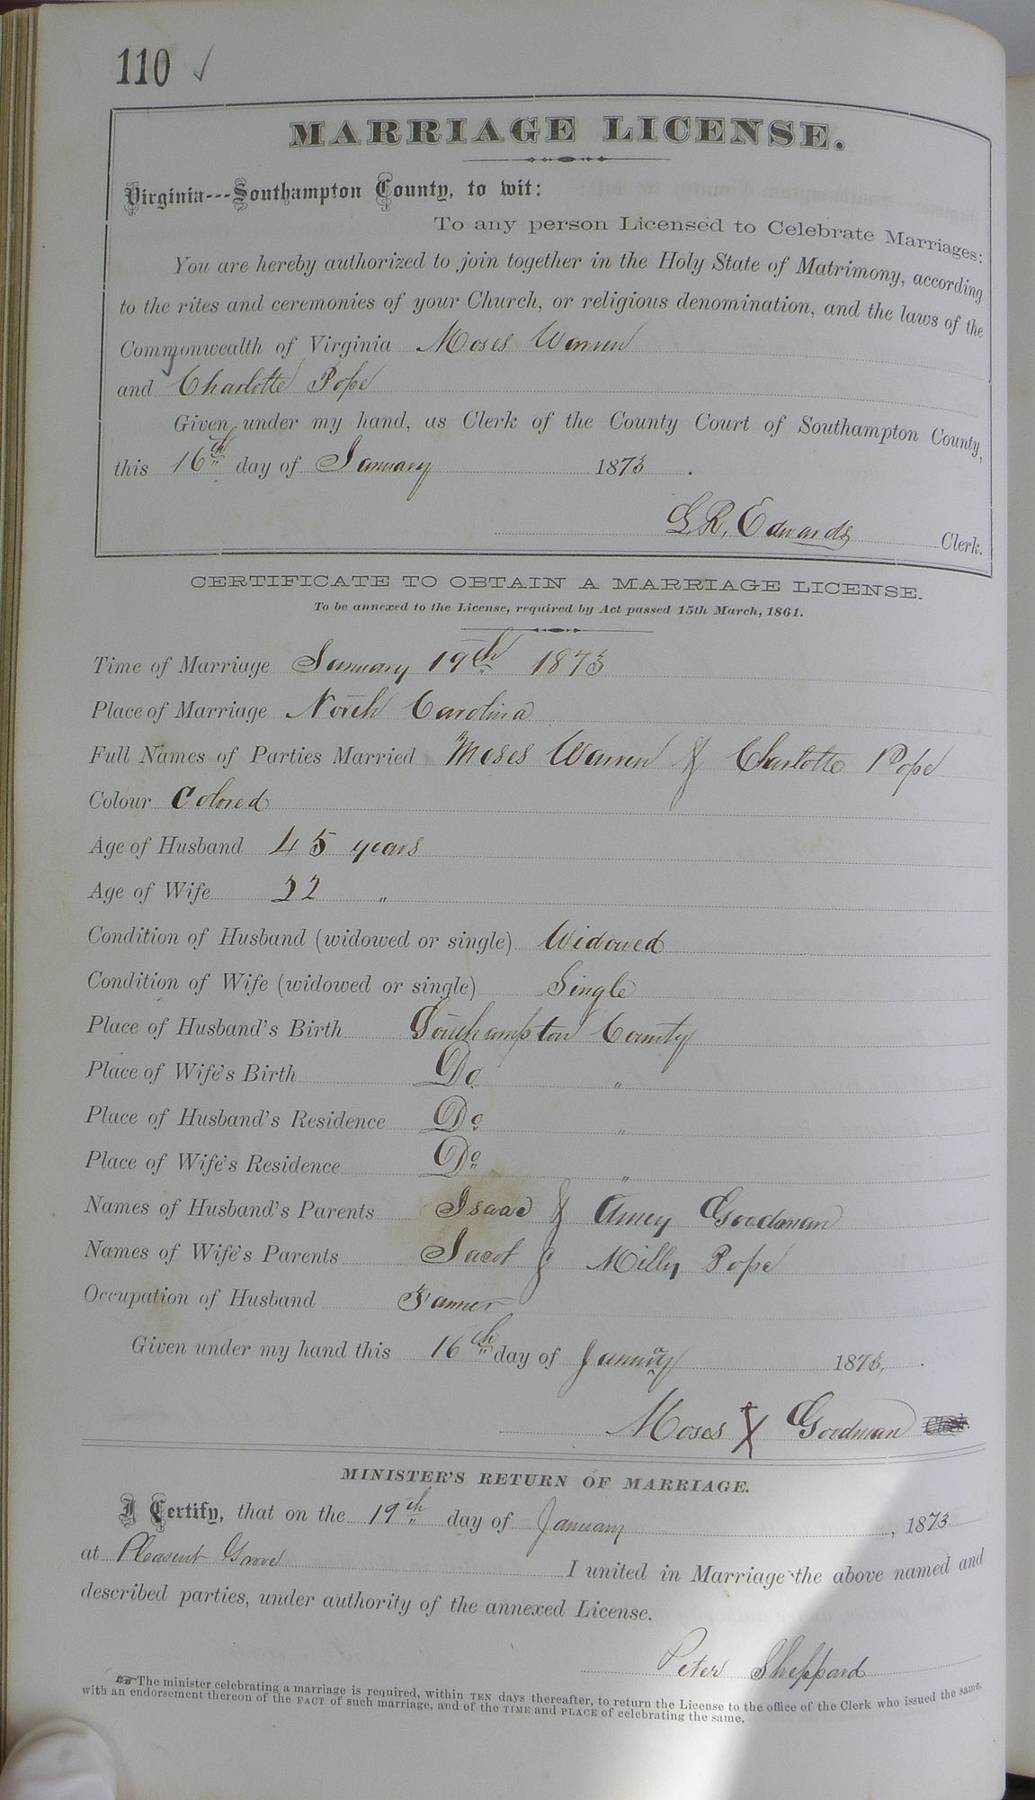 110 ✓
MARRIAGE LICENSE.
Virginia---Southampton County, to wit:
To any person Licensed to Celebrate Marriages:
You are hereby authorized to join together in the Holy State of Matrimony, according
to the rites and ceremonies of your Church, or religious denomination, and the laws of the
Commonwealth of Virginia Moses Warren
and Charlotte Pope
Given under my hand, as Clerk of the County Court of Southampton County,
this 16th day of January 1873.
L. R. Edwards Clerk.
CERTIFICATE TO OBTAIN A MARRIAGE LICENSE.
To be annexed to the License, required by Act passed 15th March, 1861.
Time of Marriage January 19th 1873
Place of Marriage North Carolina
Full Names of Parties Married Moses Warren & Charlotte Pope
Colour Colored
Age of Husband 45 years
Age of Wife 22 "
Condition of Husband (widowed or single) Widowed
Condition of Wife (widowed or single) Single
Place of Husband's Birth Southampton County
Place of Wife's Birth Do "
Place of Husband's Residence Do "
Place of Wife's Residence Do "
Names of Husband's Parents Isaac & Amey Goodman
Names of Wife's Parents Jacob & Milly Pope
Occupation of Husband Farmer
Given under my hand this 16th day of January 1873,
Moses X Goodman
MINISTER'S RETURN OF MARRIAGE.
I Certify, that on the 19th day of January, 1873
at Pleasent Grove I united in Marriage the above named and
described parties, under authority of the annexed License.
Peter Sheppard
☞ The minister celebrating a marriage is required, within TEN days thereafter, to return the License to the office of the Clerk who issued the same,
with an endorsement thereon of the FACT of such marriage, and of the TIME and PLACE of celebrating the same.